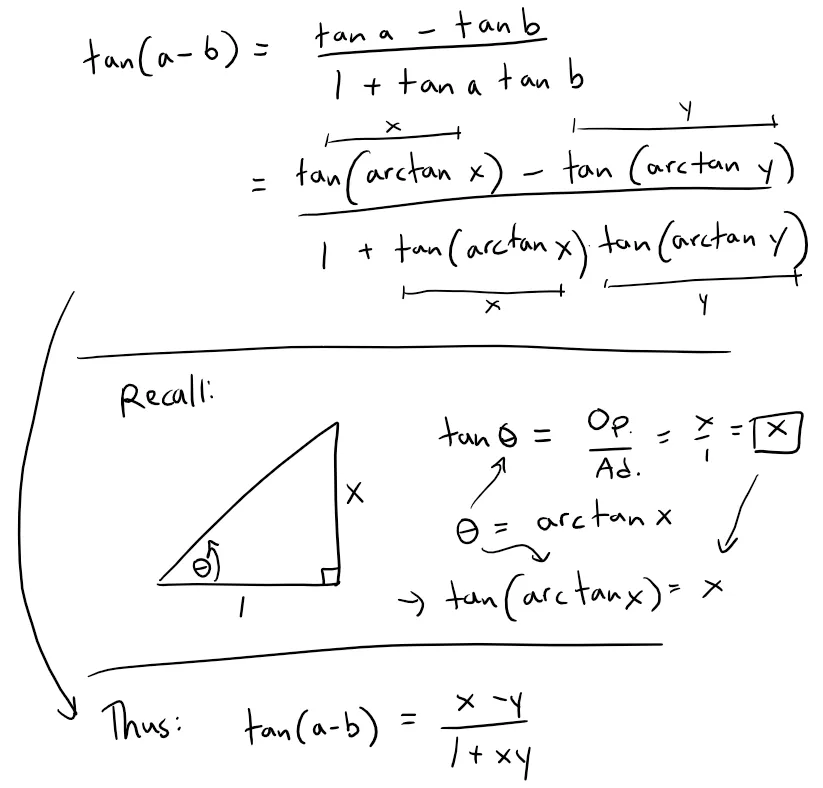 tan(a-b) = (tan a - tan b) / (1 + tan a tan b)
x y
= (tan(arctan x) - tan(arctan y)) / (1 + tan(arctan x) tan(arctan y))
x y
Recall:
tan θ = Op. / Ad. = x/1 = x
x
θ = arctan x
θ
→ tan(arctan x) = x
1
Thus: tan(a-b) = (x - y) / (1 + xy)